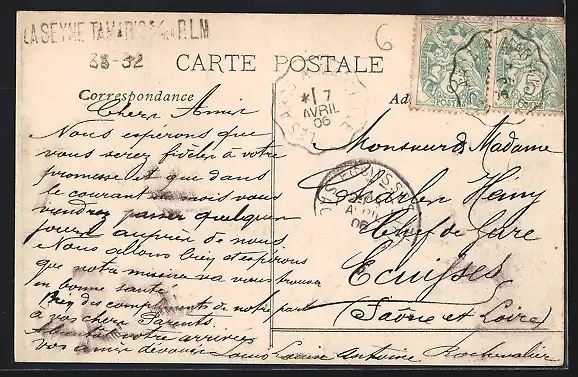 LA SEYNE TAMARIS P.L.M
38-32
6
CARTE POSTALE
Correspondance
7
AVRIL
06
Chers Amis
Nous espérons que
vous serez fidèles à votre
promesse et que dans
le courant du mois vous
viendrez passer quelques
jours auprès de nous
Nous allons bien et espérons
que notre missive va vous trouver
en bonne santé
Bien des compliments de notre part
à vos chers Parents.
votre arrivée
vos amis dévoués Louis Louise Antoine Rochevalier
Monsieur & Madame
Charles Heiny
Chef de Gare
Ecuisses
(Saône et Loire)